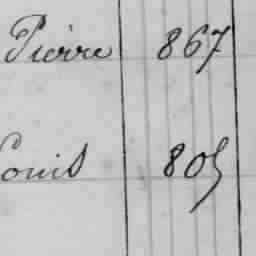 Pierre 867
Louis 805